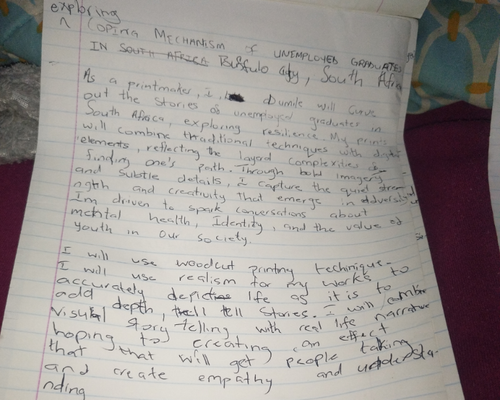 exploring
^ COPING MECHANISM of UNEMPLOYED GRADUATES
IN SOUTH AFRICA Buffulo City, South Africa
As a printmaker, I, Dumile will Carve
out the stories of unemployed graduates in
South Africa, exploring resilience. My prints
will combine thraditional techniques with digital
elements, reflecting the layerd complexities of
finding one's path. Through bold imagery
and subtle details, I capture the quiet stren-
ngth and creativity that emerge in adversity
I'm driven to spark conversations about
mental health, Identity, and the value of
youth in our society.
I will use woodcut printing technique.
I will use realism for my works to
accurately depict life as it is to
add depth, tell stories. I will combine
visual story telling with real life narrative
hoping to creating an effect
that that will get people talking
and create empathy and understa-
nding